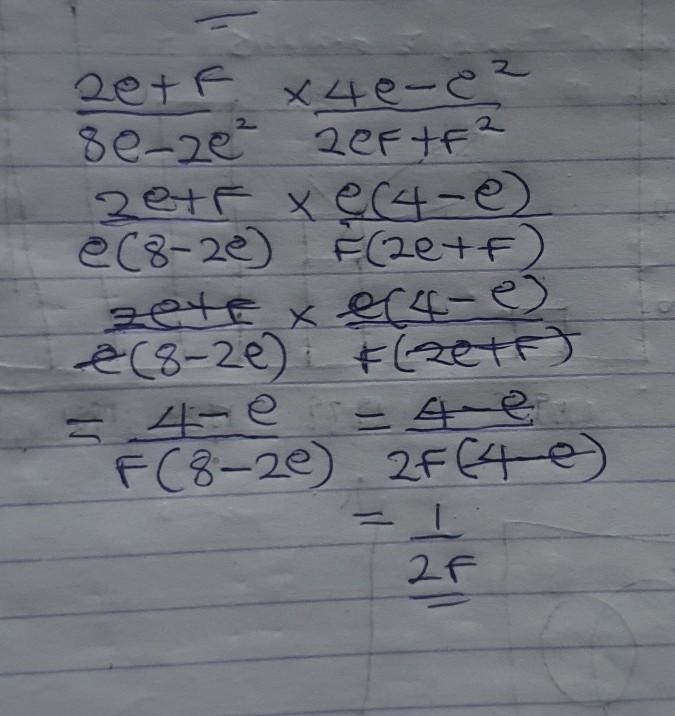 2e+F/8e-2e² × 4e-e²/2eF+F²
2e+F/e(8-2e) × e(4-e)/F(2e+F)
2e+F/e(8-2e) × e(4-e)/F(2e+F)
= 4-e/F(8-2e) = 4-e/2F(4-e)
= 1/2F